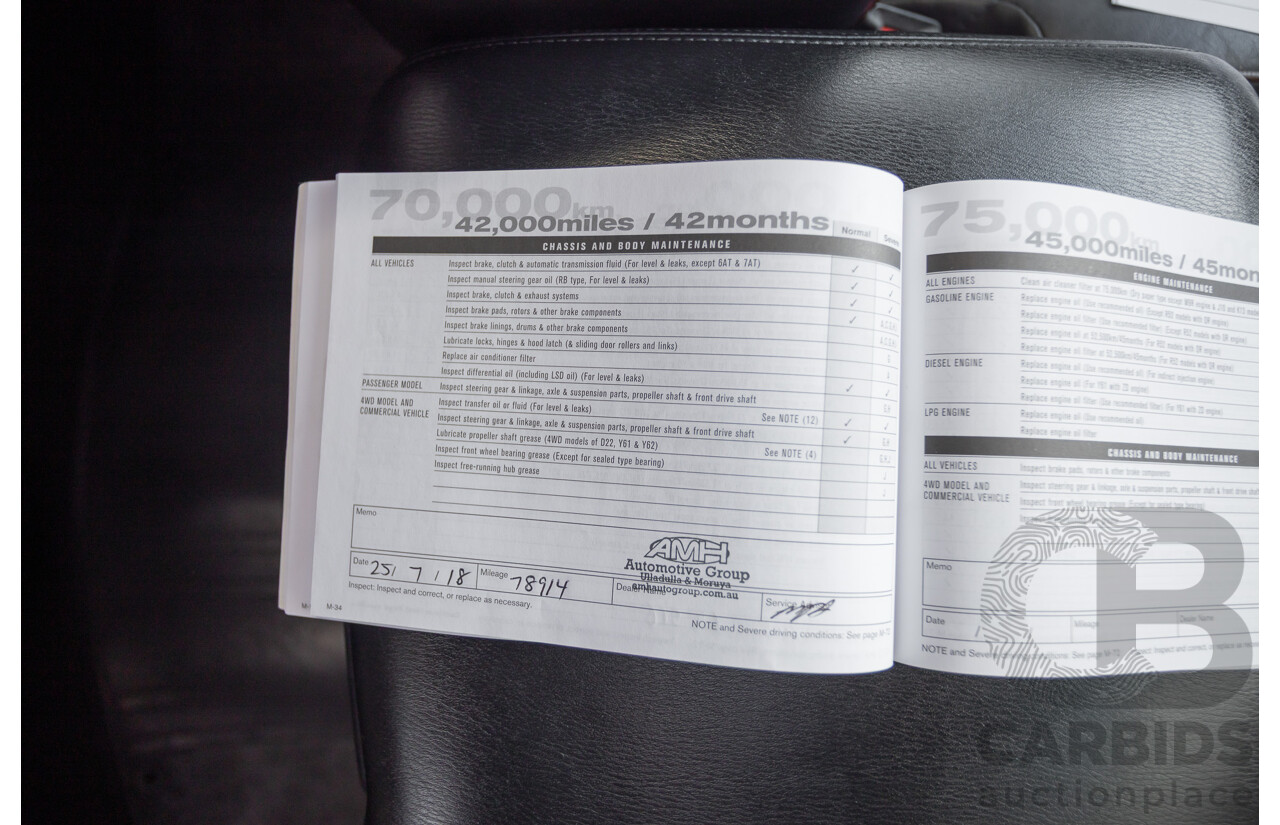 70,000km
42,000miles / 42months
Normal
CHASSIS AND BODY MAINTENANCE
ALL VEHICLES
Inspect brake, clutch & automatic transmission fluid (For level & leaks, except 6AT & 7AT)
Inspect manual steering gear oil (RB type, For level & leaks)
Inspect brake, clutch & exhaust systems
Inspect brake pads, rotors & other brake components
Inspect brake linings, drums & other brake components
Lubricate locks, hinges & hood latch (& sliding door rollers and links)
Replace air conditioner filter
Inspect differential oil (including LSD oil) (For level & leaks)
PASSENGER MODEL Inspect steering gear & linkage, axle & suspension parts, propeller shaft & front drive shaft
4WD MODEL AND
COMMERCIAL VEHICLE
Inspect transfer oil or fluid (For level & leaks) See NOTE (12)
Inspect steering gear & linkage, axle & suspension parts, propeller shaft & front drive shaft
Lubricate propeller shaft grease (4WD models of D22, Y61 & Y62) See NOTE (4)
Inspect front wheel bearing grease (Except for sealed type bearing)
Inspect free-running hub grease
Memo
AMH
Automotive Group
Ulladulla & Moruya
amhautogroup.com.au
Date 25/ 7 / 18 Mileage 78914
Inspect: Inspect and correct, or replace as necessary.
NOTE and Severe driving conditions: See page M-72
M-34
75,000km
45,000miles / 45mon
ENGINE MAINTENANCE
ALL ENGINES
GASOLINE ENGINE
Replace engine oil (Use recommended oil) (Except R52 models with QR engine)
DIESEL ENGINE
LPG ENGINE
Replace engine oil (Use recommended oil)
Replace engine oil filter
CHASSIS AND BODY MAINTENANCE
ALL VEHICLES Inspect brake pads, rotors & other brake components
4WD MODEL AND
COMMERCIAL VEHICLE
Inspect steering gear & linkage, axle & suspension parts, propeller shaft & front drive shaft
Memo
Date Mileage Dealer Name
CB
CARBIDS
auctionplace